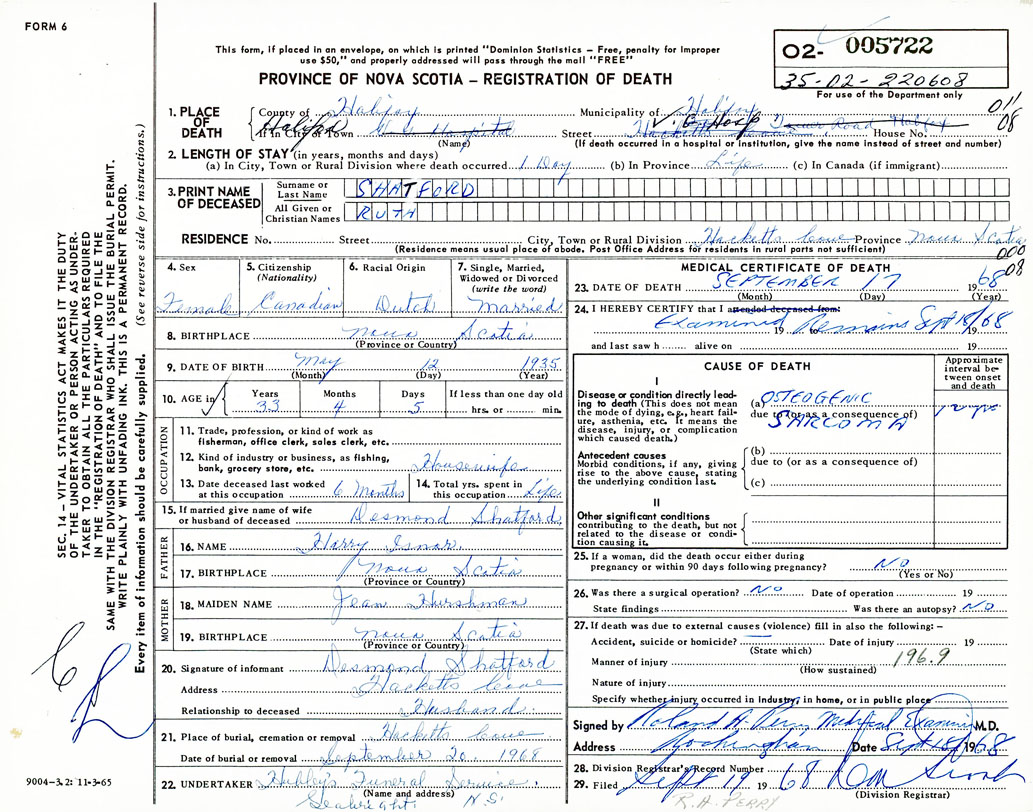 FORM 6
This form, if placed in an envelope, on which is printed "Dominion Statistics – Free, penalty for improper
use $50," and properly addressed will pass through the mail "FREE"
PROVINCE OF NOVA SCOTIA – REGISTRATION OF DEATH
O2- 005722
35-02-220608
For use of the Department only
011
08
SEC. 14 – VITAL STATISTICS ACT MAKES IT THE DUTY
OF THE UNDERTAKER OR PERSON ACTING AS UNDER-
TAKER TO OBTAIN ALL THE PARTICULARS REQUIRED
IN THE "REGISTRATION OF DEATH" AND TO FILE THE
SAME WITH THE DIVISION REGISTRAR WHO SHALL ISSUE THE BURIAL PERMIT.
WRITE PLAINLY WITH UNFADING INK. THIS IS A PERMANENT RECORD.
Every item of information should be carefully supplied. (See reverse side for instructions.)
1. PLACE OF DEATH
County of Halifax Municipality of Halifax
If in City or Town Halifax Hospital Street V. G. Hosp Hacketts Tower Road Halifax House No.
(Name) (If death occurred in a hospital or institution, give the name instead of street and number)
2. LENGTH OF STAY (in years, months and days)
(a) In City, Town or Rural Division where death occurred 1 Day (b) In Province Life (c) In Canada (if immigrant)
3. PRINT NAME OF DECEASED
Surname or Last Name SHATFORD
All Given or Christian Names RUTH
RESIDENCE No. Street City, Town or Rural Division Hacketts Cove Province Nova Scotia
(Residence means usual place of abode. Post Office Address for residents in rural parts not sufficient)
000
08
4. Sex Female
5. Citizenship (Nationality) Canadian
6. Racial Origin Dutch
7. Single, Married, Widowed or Divorced (write the word) Married
8. BIRTHPLACE Nova Scotia
(Province or Country)
9. DATE OF BIRTH May 12 1935
(Month) (Day) (Year)
10. AGE in Years 33 Months 4 Days 5 If less than one day old hrs. or min.
OCCUPATION
11. Trade, profession, or kind of work as fisherman, office clerk, sales clerk, etc.
12. Kind of industry or business, as fishing, bank, grocery store, etc. Housewife
13. Date deceased last worked at this occupation 6 Months
14. Total yrs. spent in this occupation Life
15. If married give name of wife or husband of deceased Desmond Shatford
FATHER
16. NAME Harry Isnor
17. BIRTHPLACE Nova Scotia
(Province or Country)
MOTHER
18. MAIDEN NAME Jean Hirshman
19. BIRTHPLACE Nova Scotia
(Province or Country)
20. Signature of informant Desmond Shatford
Address Hacketts Cove
Relationship to deceased Husband
21. Place of burial, cremation or removal Hacketts Cove
Date of burial or removal September 20, 1968
22. UNDERTAKER Hubley's Funeral Service
(Name and address)
Seabright N.S.
9004-3.2: 11-3-65
MEDICAL CERTIFICATE OF DEATH
23. DATE OF DEATH SEPTEMBER 17 1968
(Month) (Day) (Year)
24. I HEREBY CERTIFY that I attended deceased from:
Examined 19 Remains Sept 18/68
and last saw h alive on 19
CAUSE OF DEATH
Approximate interval between onset and death
I
Disease or condition directly leading to death (This does not mean the mode of dying, e.g., heart failure, asthenia, etc. It means the disease, injury, or complication which caused death.)
(a) OSTEOGENIC
due to (or as a consequence of)
SARCOMA
Antecedent causes
Morbid conditions, if any, giving rise to the above cause, stating the underlying condition last.
(b)
due to (or as a consequence of)
(c)
II
Other significant conditions
contributing to the death, but not related to the disease or condition causing it.
25. If a woman, did the death occur either during pregnancy or within 90 days following pregnancy? NO
(Yes or No)
26. Was there a surgical operation? NO Date of operation 19
State findings Was there an autopsy? NO
27. If death was due to external causes (violence) fill in also the following: –
Accident, suicide or homicide? Date of injury 19
(State which)
Manner of injury 196.9
(How sustained)
Nature of injury
Specify whether injury occurred in industry, in home, or in public place
Signed by Roland H. Perry Medical Examiner M.D.
Address Rockingham Date Sept 18 1968
28. Division Registrar's Record Number
29. Filed Sept 19 1968
(Division Registrar)
R.H. PERRY